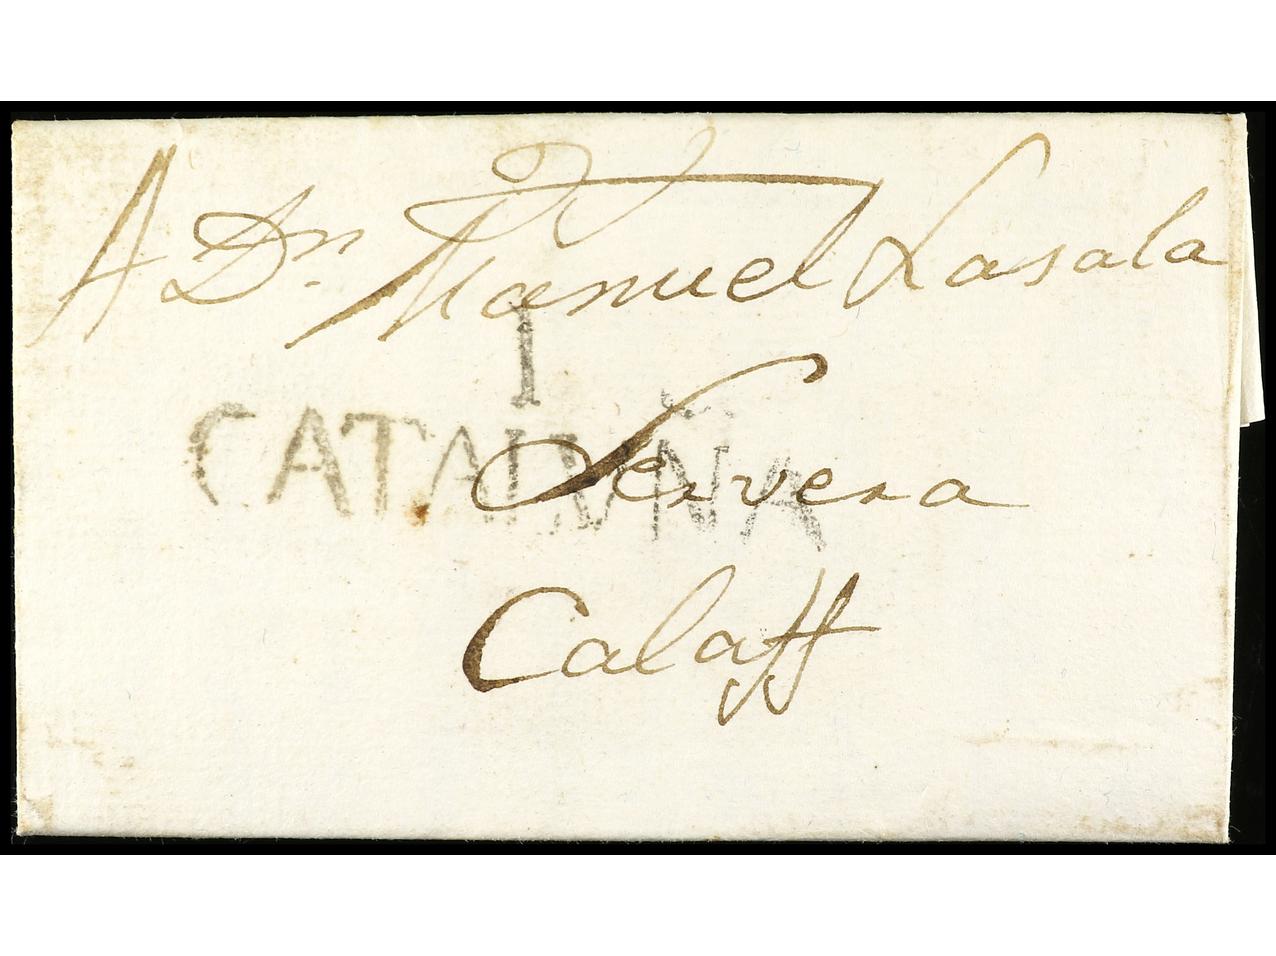 A Dn. Manuel Lasala
I
CATALUÑA
Servera
Calaff